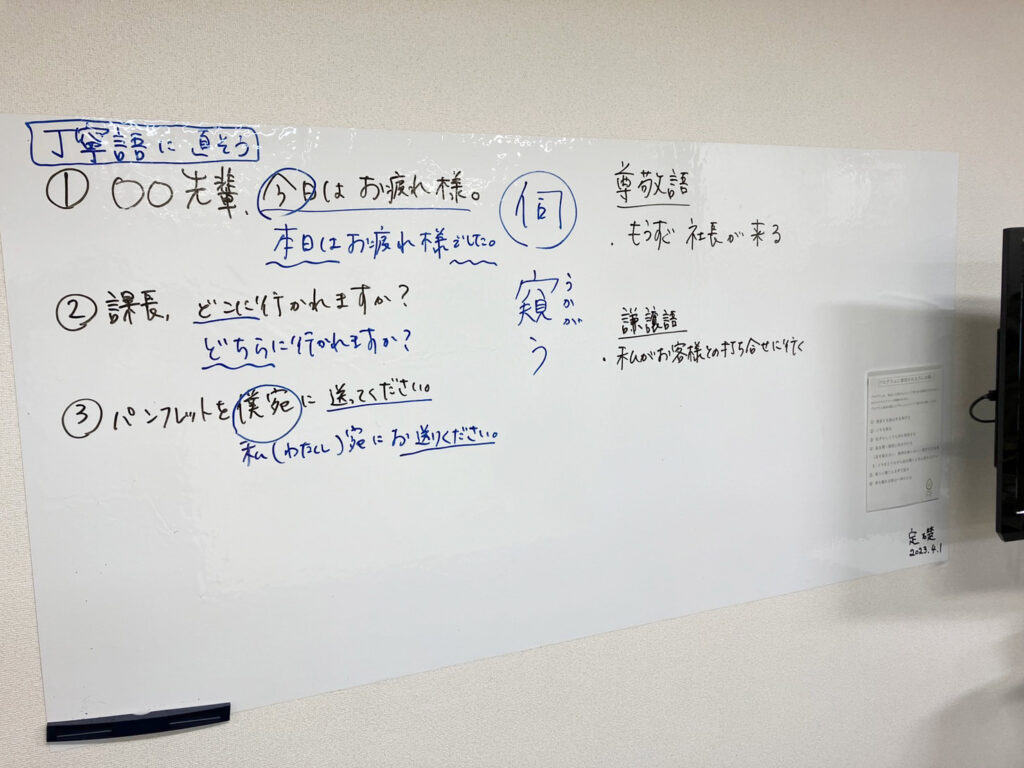 丁寧語に直そう
① 〇〇先輩、今日はお疲れ様。
本日はお疲れ様でした。
② 課長、どこに行かれますか？
どちらに行かれますか？
③ パンフレットを僕宛に送ってください。
私(わたくし)宛にお送りください。
伺
窺う
うかが
尊敬語
・もうすぐ社長が来る
謙譲語
・私がお客様との打ち合せに行く
定礎
2023.4.1